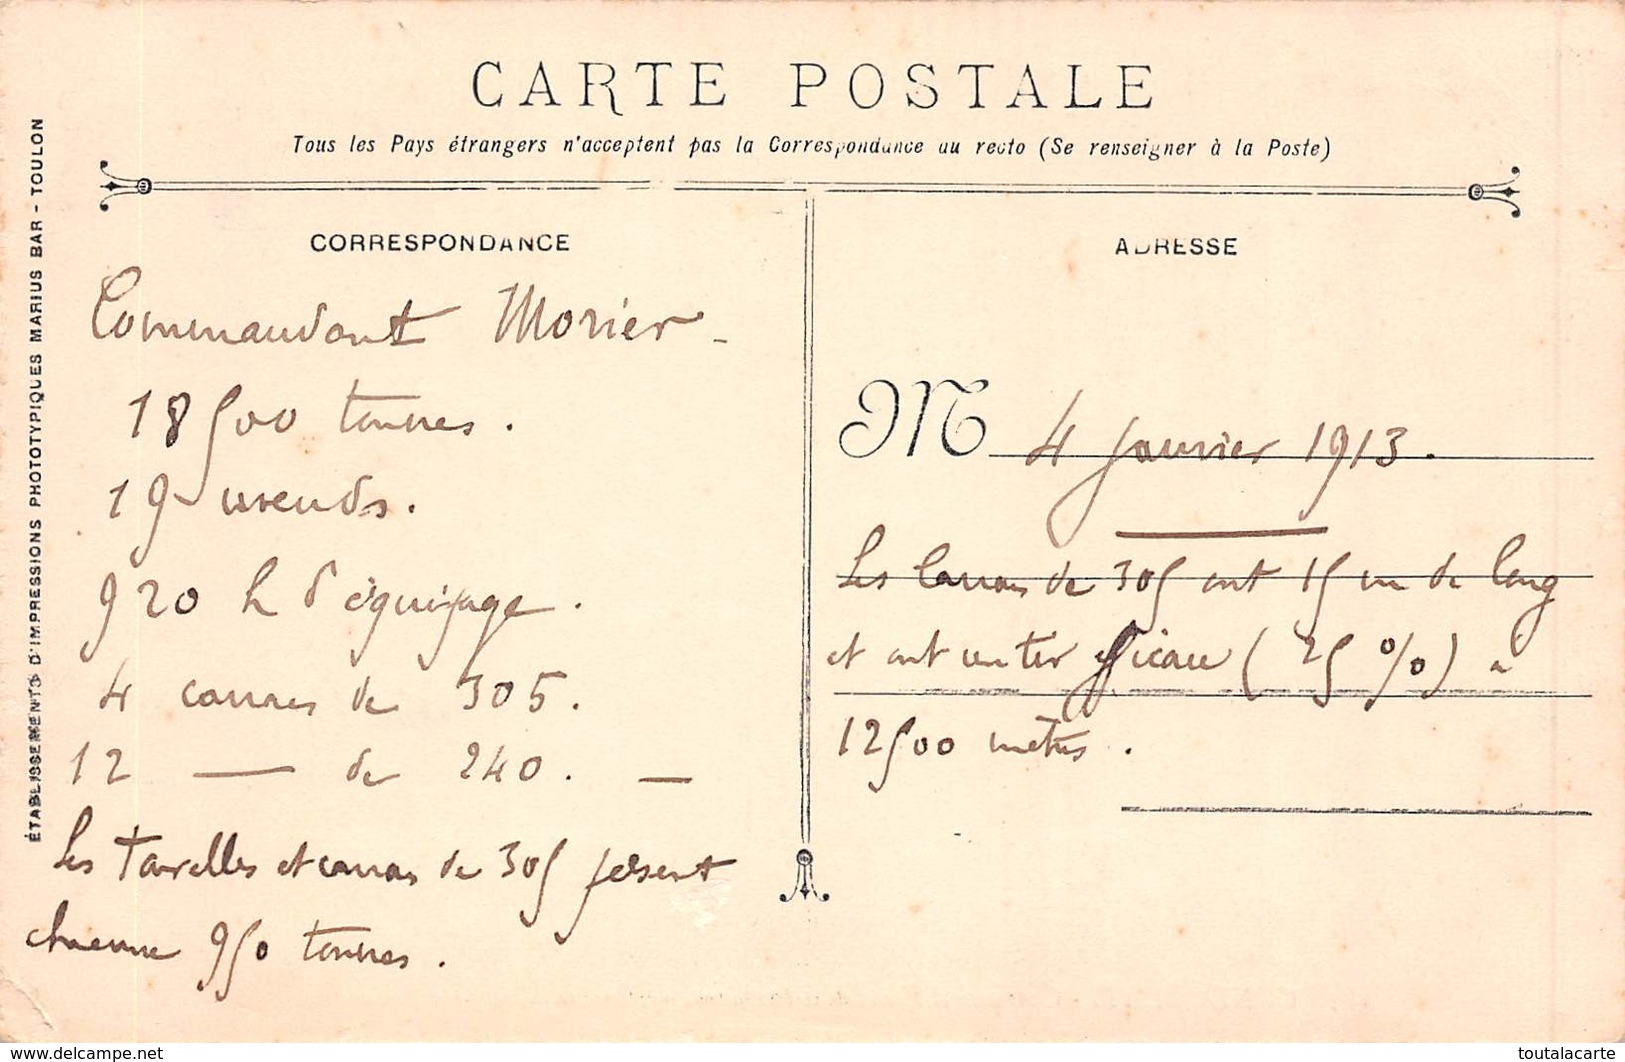 CARTE POSTALE
Tous les Pays étrangers n'acceptent pas la Correspondance au recto (Se renseigner à la Poste)
ÉTABLISSEMENTS D'IMPRESSIONS PHOTOTYPIQUES MARIUS BAR - TOULON
CORRESPONDANCE
Commandant Morier -
18500 tonnes.
19 nœuds.
920 h d'équipage.
4 canons de 305.
12 — de 240. —
Les Tourelles et canons de 305 pèsent
chacune 950 tonnes.
ADRESSE
M 4 Janvier 1913.
Les canons de 305 ont 15 m de long
et ont un tir efficace (25 %) à
12500 mètres.
www.delcampe.net
toutalacarte